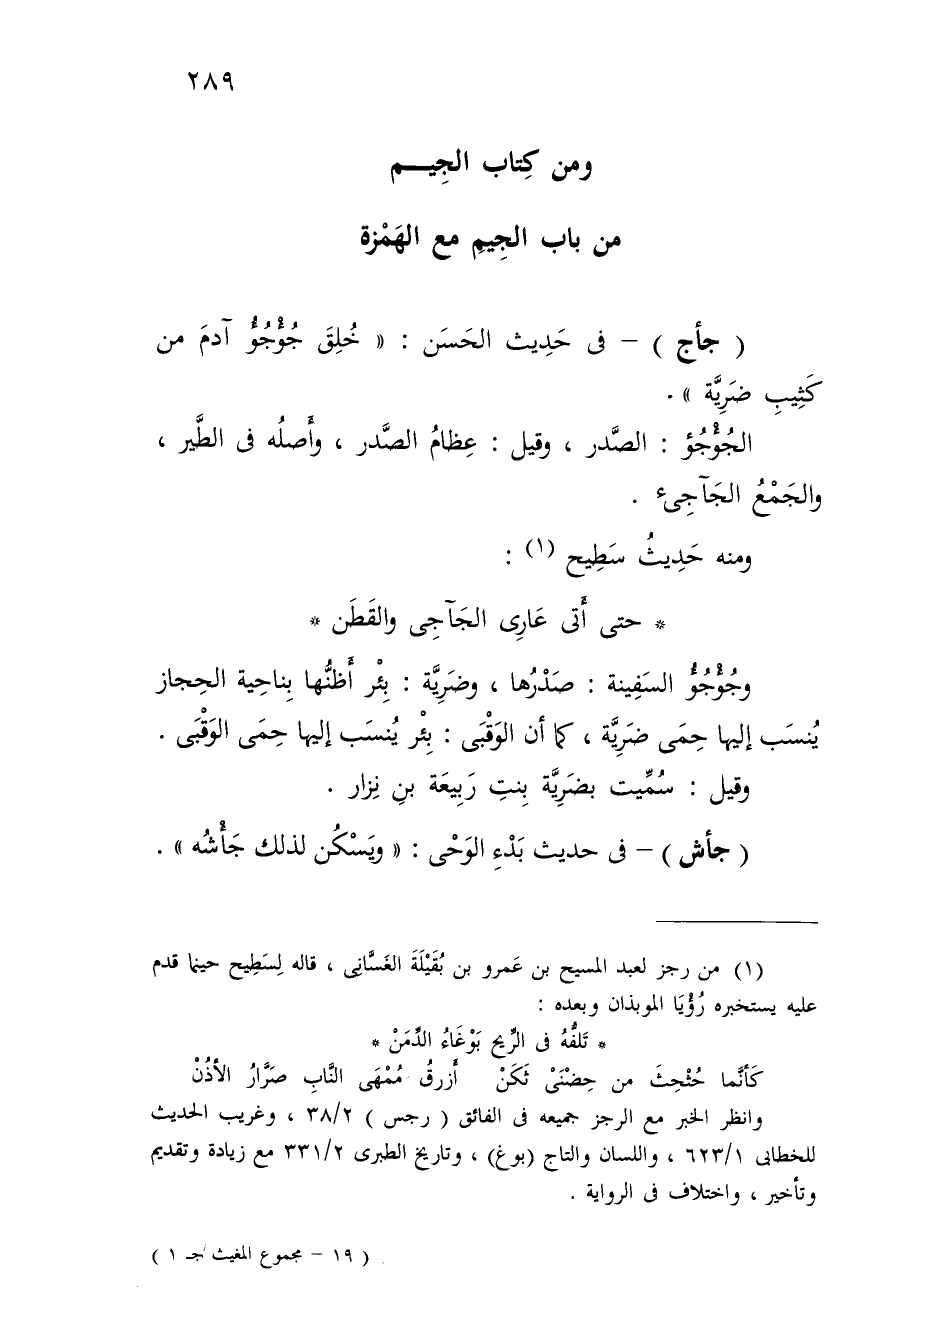 ٢٨٩
ومن كِتاب الجِيـــم
من باب الجِيمِ مع الهَمْزة
( جأج ) – فى حَدِيث الحَسَن : « خُلِقَ جُؤْجُؤُ آدمَ من
كَثِيبِ ضَرِيَّة » .
الجُؤْجُؤ : الصَّدر ، وقيل : عِظامُ الصَّدر ، وأَصلُه فى الطَّير ،
والجَمْعُ الجَآجِىء .
ومنه حَدِيثُ سَطِيح (١) :
* حتى أَتى عَارِى الجَآجِى والقَطَن *
وجُؤْجُؤُ السَفِينة : صَدْرُها ، وضَرِيَّة : بِئْر أَظنُّها بِناحية الحِجاز
يُنسَب إليها حِمَى ضَرِيَّة ، كما أن الوَقْبَى : بِئْر يُنسَب إليها حِمَى الوَقْبَى .
وقيل : سُمِّيت بضَرِيَّة بِنتِ رَبِيعَة بنِ نِزار .
( جأش ) – فى حديث بَدْءِ الوَحْى : « ويَسْكُن لذلك جَأْشُه » .
(١) من رجز لعبد المسيح بن عَمرو بن بُقَيْلَةَ الغَسَّانِى ، قاله لِسَطِيح حينما قدم
عليه يستخبره رُؤْيَا الموبذان وبعده :
* تَلفُّهُ فى الرِّيح بَوْغَاءُ الدِّمَنْ *
كَأنَّما حُثْحِثَ من حِضْنَىْ ثَكَنْ أَزرقُ مُمْهَى النَّابِ صَرَّارُ الأذُنْ
وانظر الخبر مع الرجز جميعه فى الفائق ( رجس ) ٣٨/٢ ، وغريب الحديث
للخطابى ٦٢٣/١ ، واللسان والتاج (بوغ) ، وتاريخ الطبرى ٣٣١/٢ مع زيادة وتقديم
وتأخير ، واختلاف فى الرواية .
( ١٩ – مجموع المغيث جـ ١ )